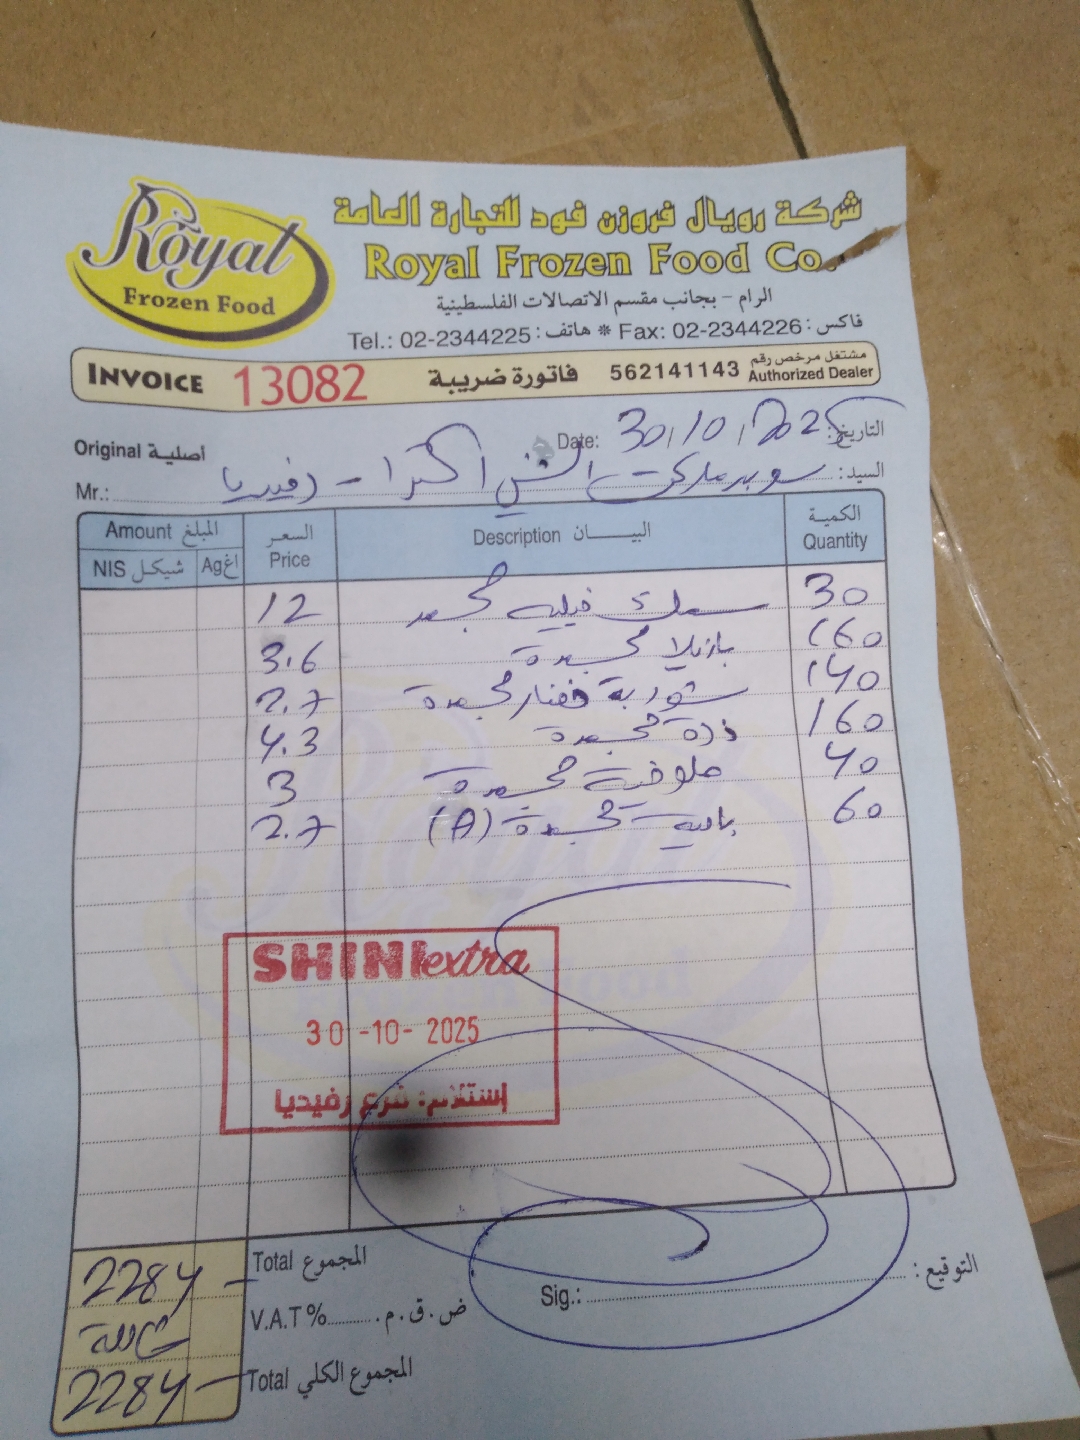 Royal
Frozen Food
شركة رويال فروزن فود للتجارة العامة
Royal Frozen Food Co.
الرام - بجانب مقسم الاتصالات الفلسطينية
Tel.: 02-2344225 : هاتف * Fax: 02-2344226 : فاكس
INVOICE 13082 فاتورة ضريبة 562141143 مشتغل مرخص رقم Authorized Dealer
Original أصلية Date: 30/10/2025 التاريخ:
Mr.: سوبرماركت الشني اكسترا - رفيديا السيد:
Amount المبلغ السعر Price Description البيـــــان الكمية Quantity
NIS شيكل Ag اغ
12 سمك فيليه مجمد 30
3.6 بازيلا مجمدة 160
2.7 شوربة خضار مجمدة 140
4.3 ذرة مجمدة 160
3 ملوخية مجمدة 40
2.7 بامية مجمدة (A) 60
SHINI extra
30 -10- 2025
إستلام: فرع رفيديا
2284 - Total المجموع
شاملة V.A.T% ض.ق.م.
2284 - Total المجموع الكلي
Sig.: التوقيع: